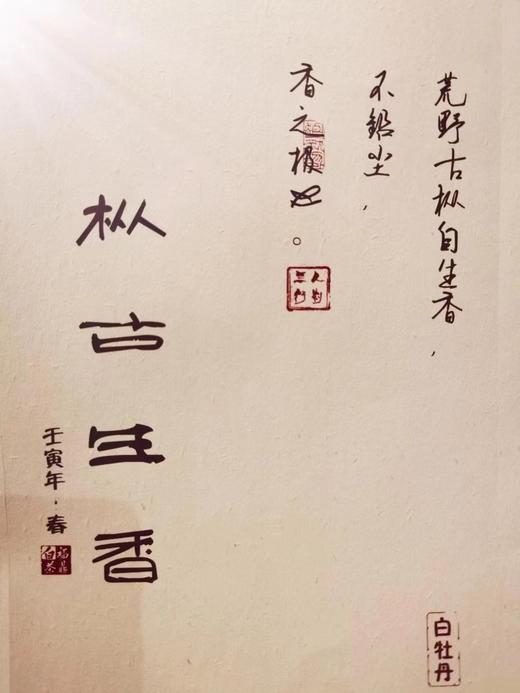 荒野古枞自生香，
不
香之
。
枞古生香
壬寅年·春
白牡丹